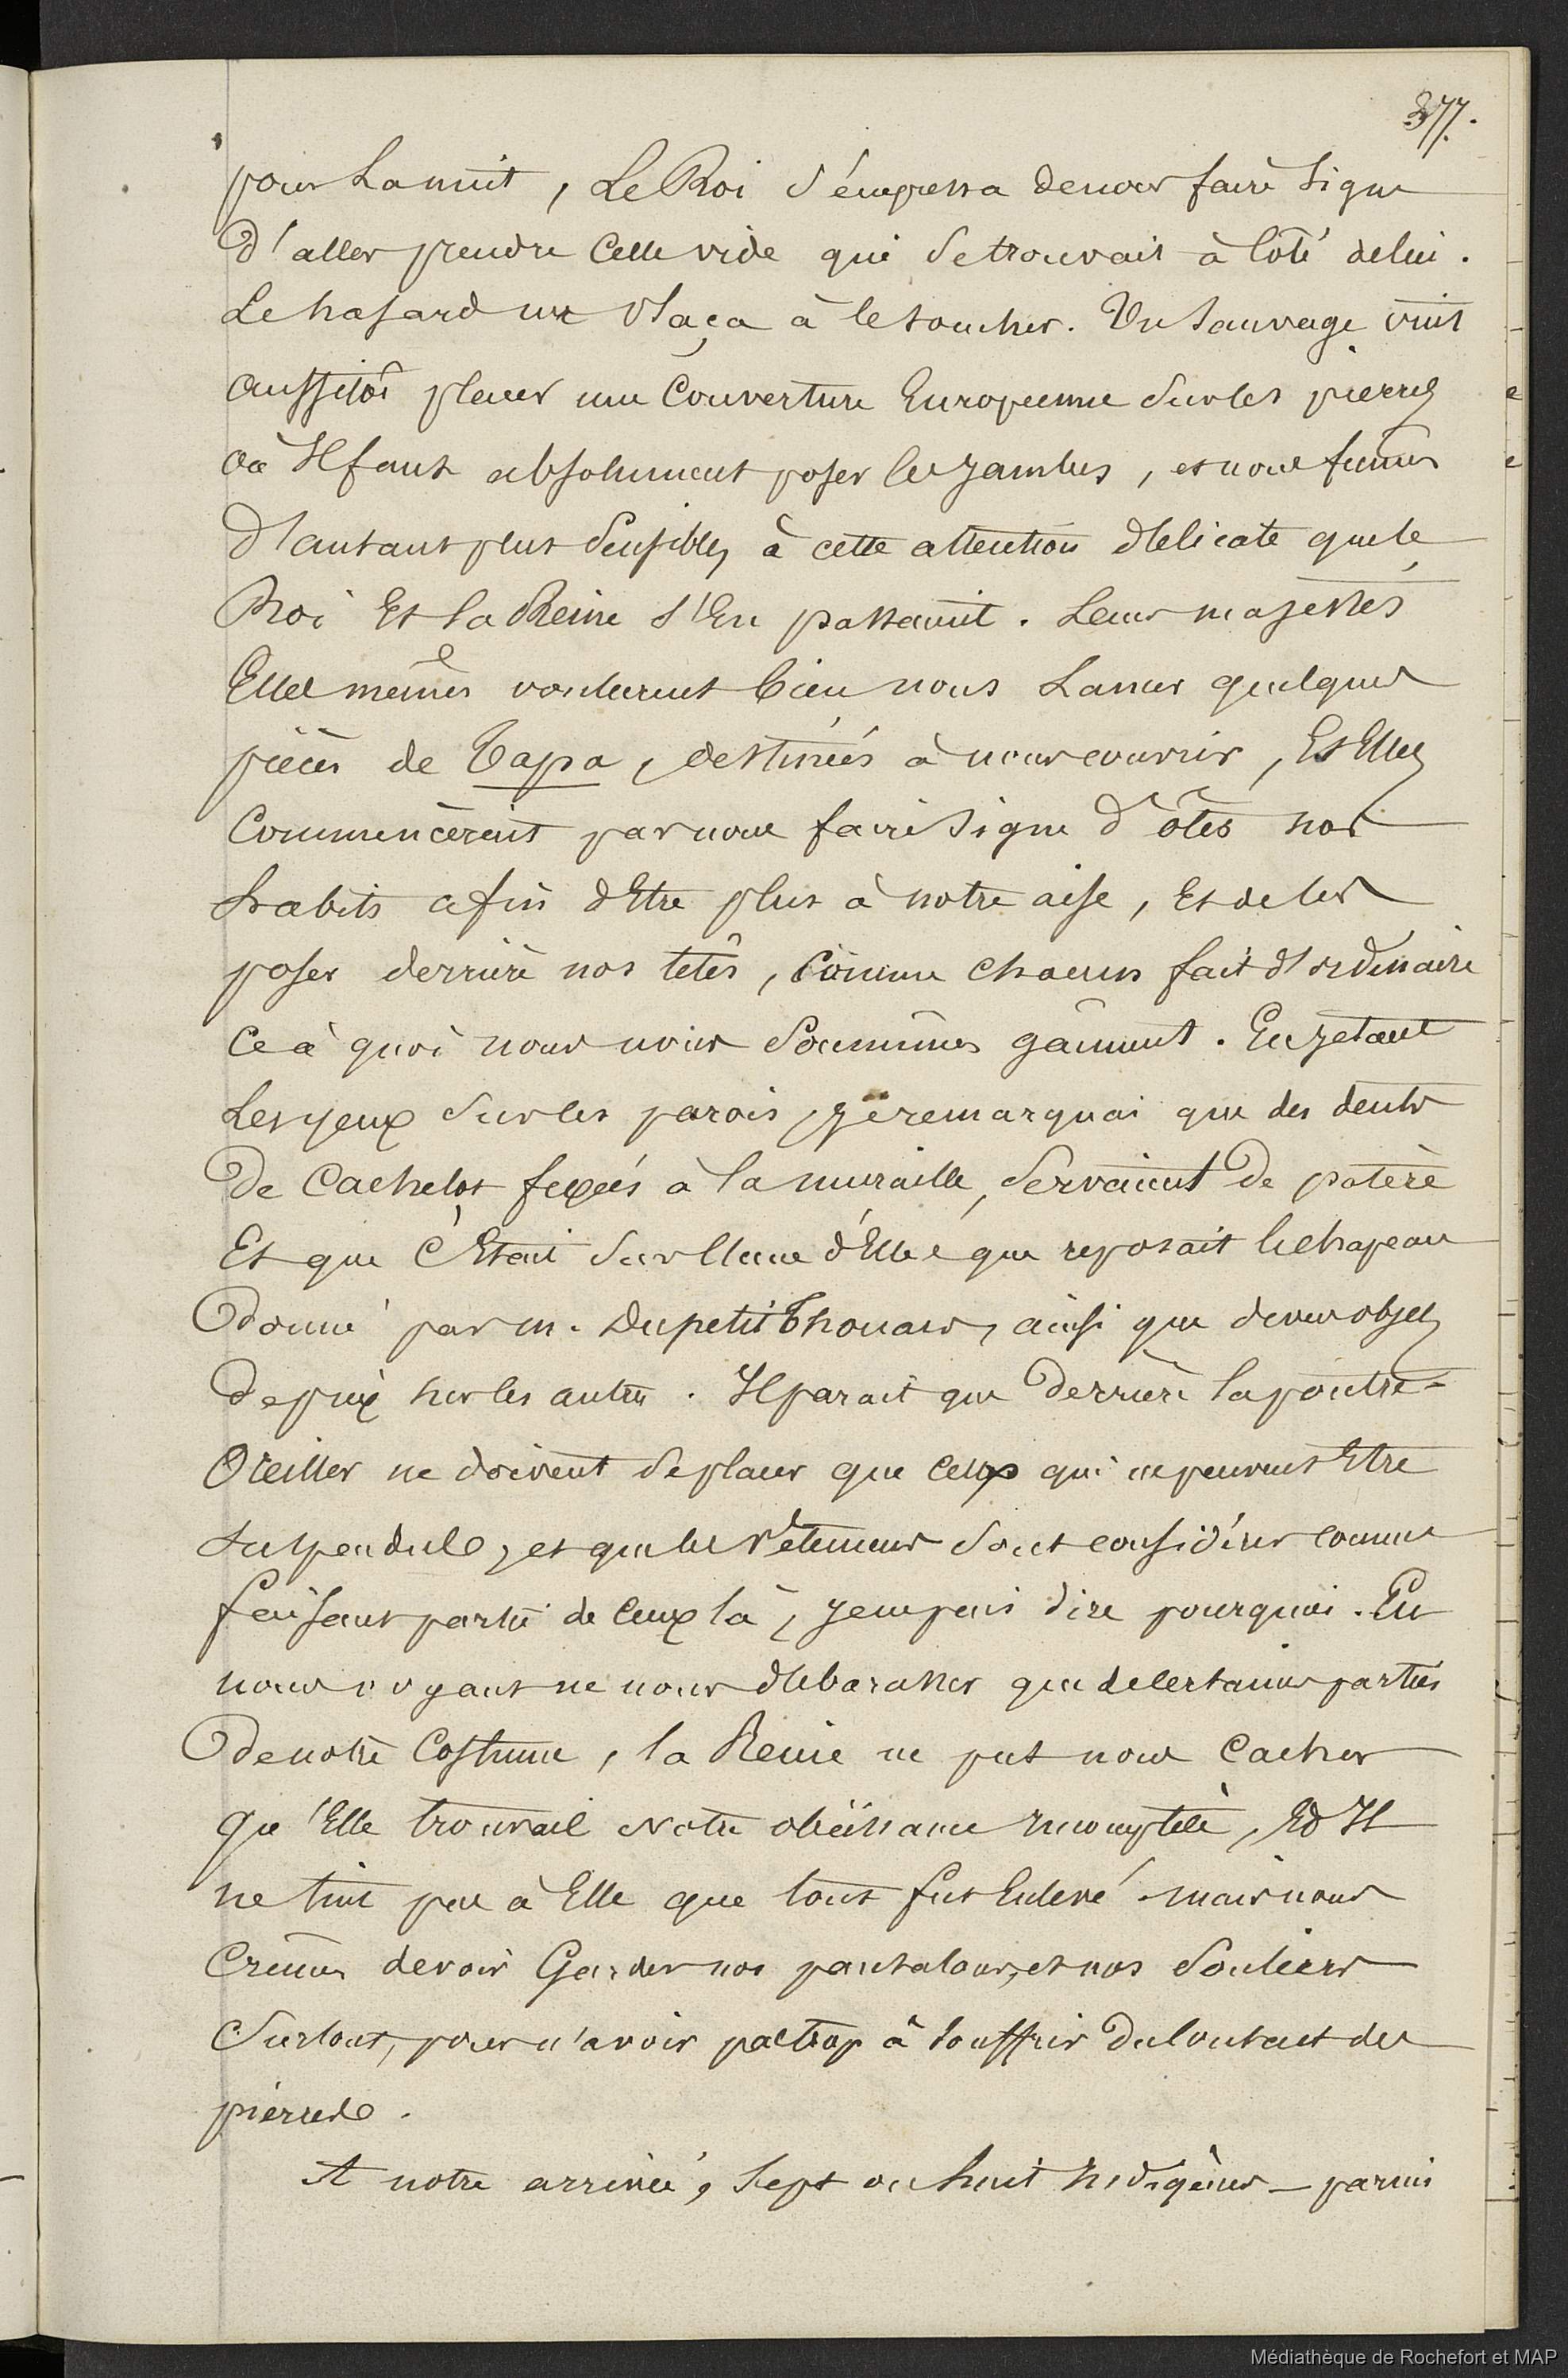 377.
pour la nuit, Le Roi s'empressa de nous faire signe
d'aller prendre celle vide qui se trouvait à côté de lui.
Le hasard me plaça à le toucher. Un sauvage vint
aussitôt placer une couverture Européenne sur les pierres
où Il faut absolument poser les jambes, et nous fumes
d'autant plus sensibles à cette attention délicate que le
Roi Et la Reine s'En passaient. Leurs majestés
Elles mêmes voulurent bien nous lancer quelques
pièces de Tapa, destinées à nous couvrir, Et Elles
Commencèrent par nous faire signe d'ôter nos
habits afin d'Etre plus à notre aise, Et de les
poser derrière nos têtes, Comme chacun fait d'ordinaire
Ce à quoi nous nous soumîmes gaîment. En jetant
Les yeux sur les parois, je remarquai que des dents
De Cachelot fixées à la muraille, servaient De patère
Et que c'Etait sur l'une d'Elles que reposait le chapeau
Donné par m. Dupetit Thouars, ainsi que divers objets
De prix sur les autres. Il parait que Derrière la poutre-
Oreiller ne doivent se placer que ceux qui ne peuvent Etre
suspendus, et que les vêtemens sont considérés comme
faisant partie de ceux là, je ne puis dire pourquoi. En
nous voyant ne nous débarasser que de certaines parties
De notre Costume, la Reine ne put nous Cacher
qu'Elle trouvait notre obéissance Incomplète, Et Il
ne tint pas à Elle que tout fut Enlevé. mais nous
Crûmes devoir Garder nos pantalons, et nos souliers
surtout, pour n'avoir pas trop à souffrir Du contact des
pierres.
A notre arrivée, sept ou huit Indigènes _ parmi
Médiathèque de Rochefort et MAP